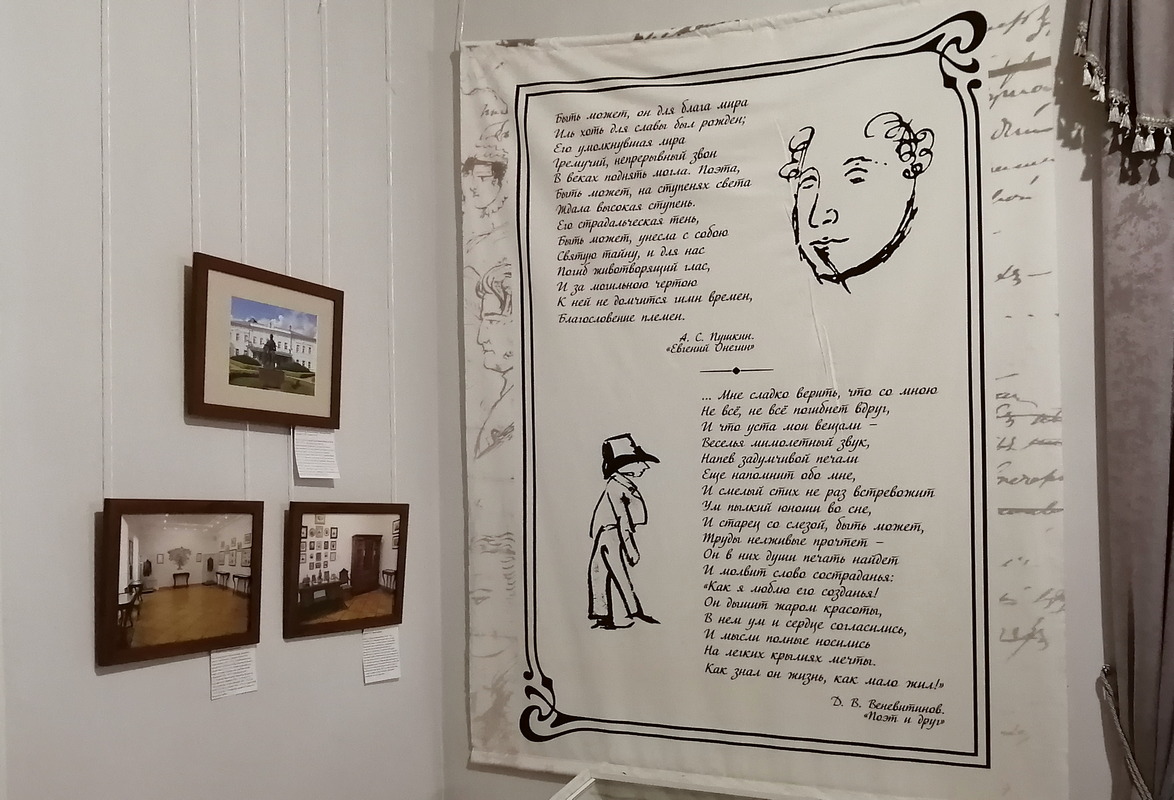 Быть может, он для блага мира
Иль хоть для славы был рожден;
Его умолкнувшая лира
Гремучий, непрерывный звон
В веках поднять могла. Поэта,
Быть может, на ступенях света
Ждала высокая ступень.
Его страдальческая тень,
Быть может, унесла с собою
Святую тайну, и для нас
Погиб животворящий глас,
И за могильною чертою
К ней не домчится гимн времен,
Благословение племен.
А. С. Пушкин.
«Евгений Онегин»
... Мне сладко верить, что со мною
Не всё, не всё погибнет вдруг,
И что уста мои вещали –
Веселья мимолетный звук,
Напев задумчивой печали
Еще напомнит обо мне,
И смелый стих не раз встревожит
Ум пылкий юноши во сне,
И старец со слезой, быть может,
Труды нелживые прочтет –
Он в них души печать найдет
И молвит слово состраданья:
«Как я люблю его созданья!
Он дышит жаром красоты,
В нем ум и сердце согласились,
И мысли полные носились
На легких крылиях мечты.
Как знал он жизнь, как мало жил!»
Д. В. Веневитинов.
«Поэт и друг»